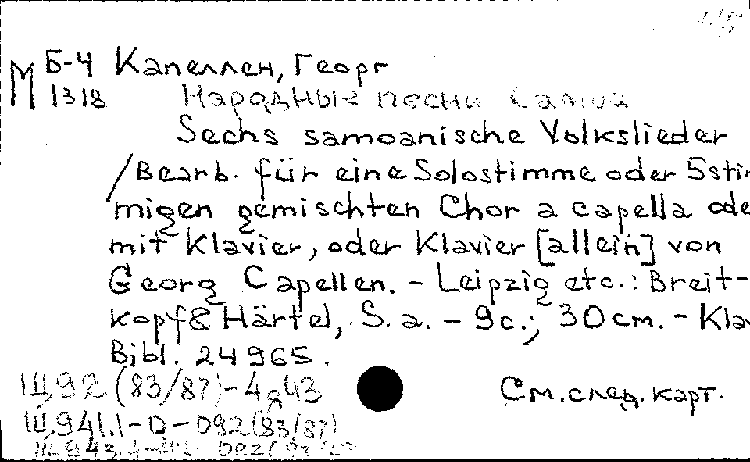 М Б-4 Капеллен, Георг
1318 Народные песни Самоа
Sechs samoanische Volkslieder
/Bearb. für eine Solostimme oder 5stim
migen gemischten Chor a capella ode
mit Klavier, oder Klavier [allein] von
Georg Capellen. - Leipzig etc.: Breit-
kopf & Härtel, S.a. - 9с.; 30cm. - Kla
Bibl. 24965.
Щ92(83/87)-4я43
Щ941.1-0-092(83/87)
См.след.карт.